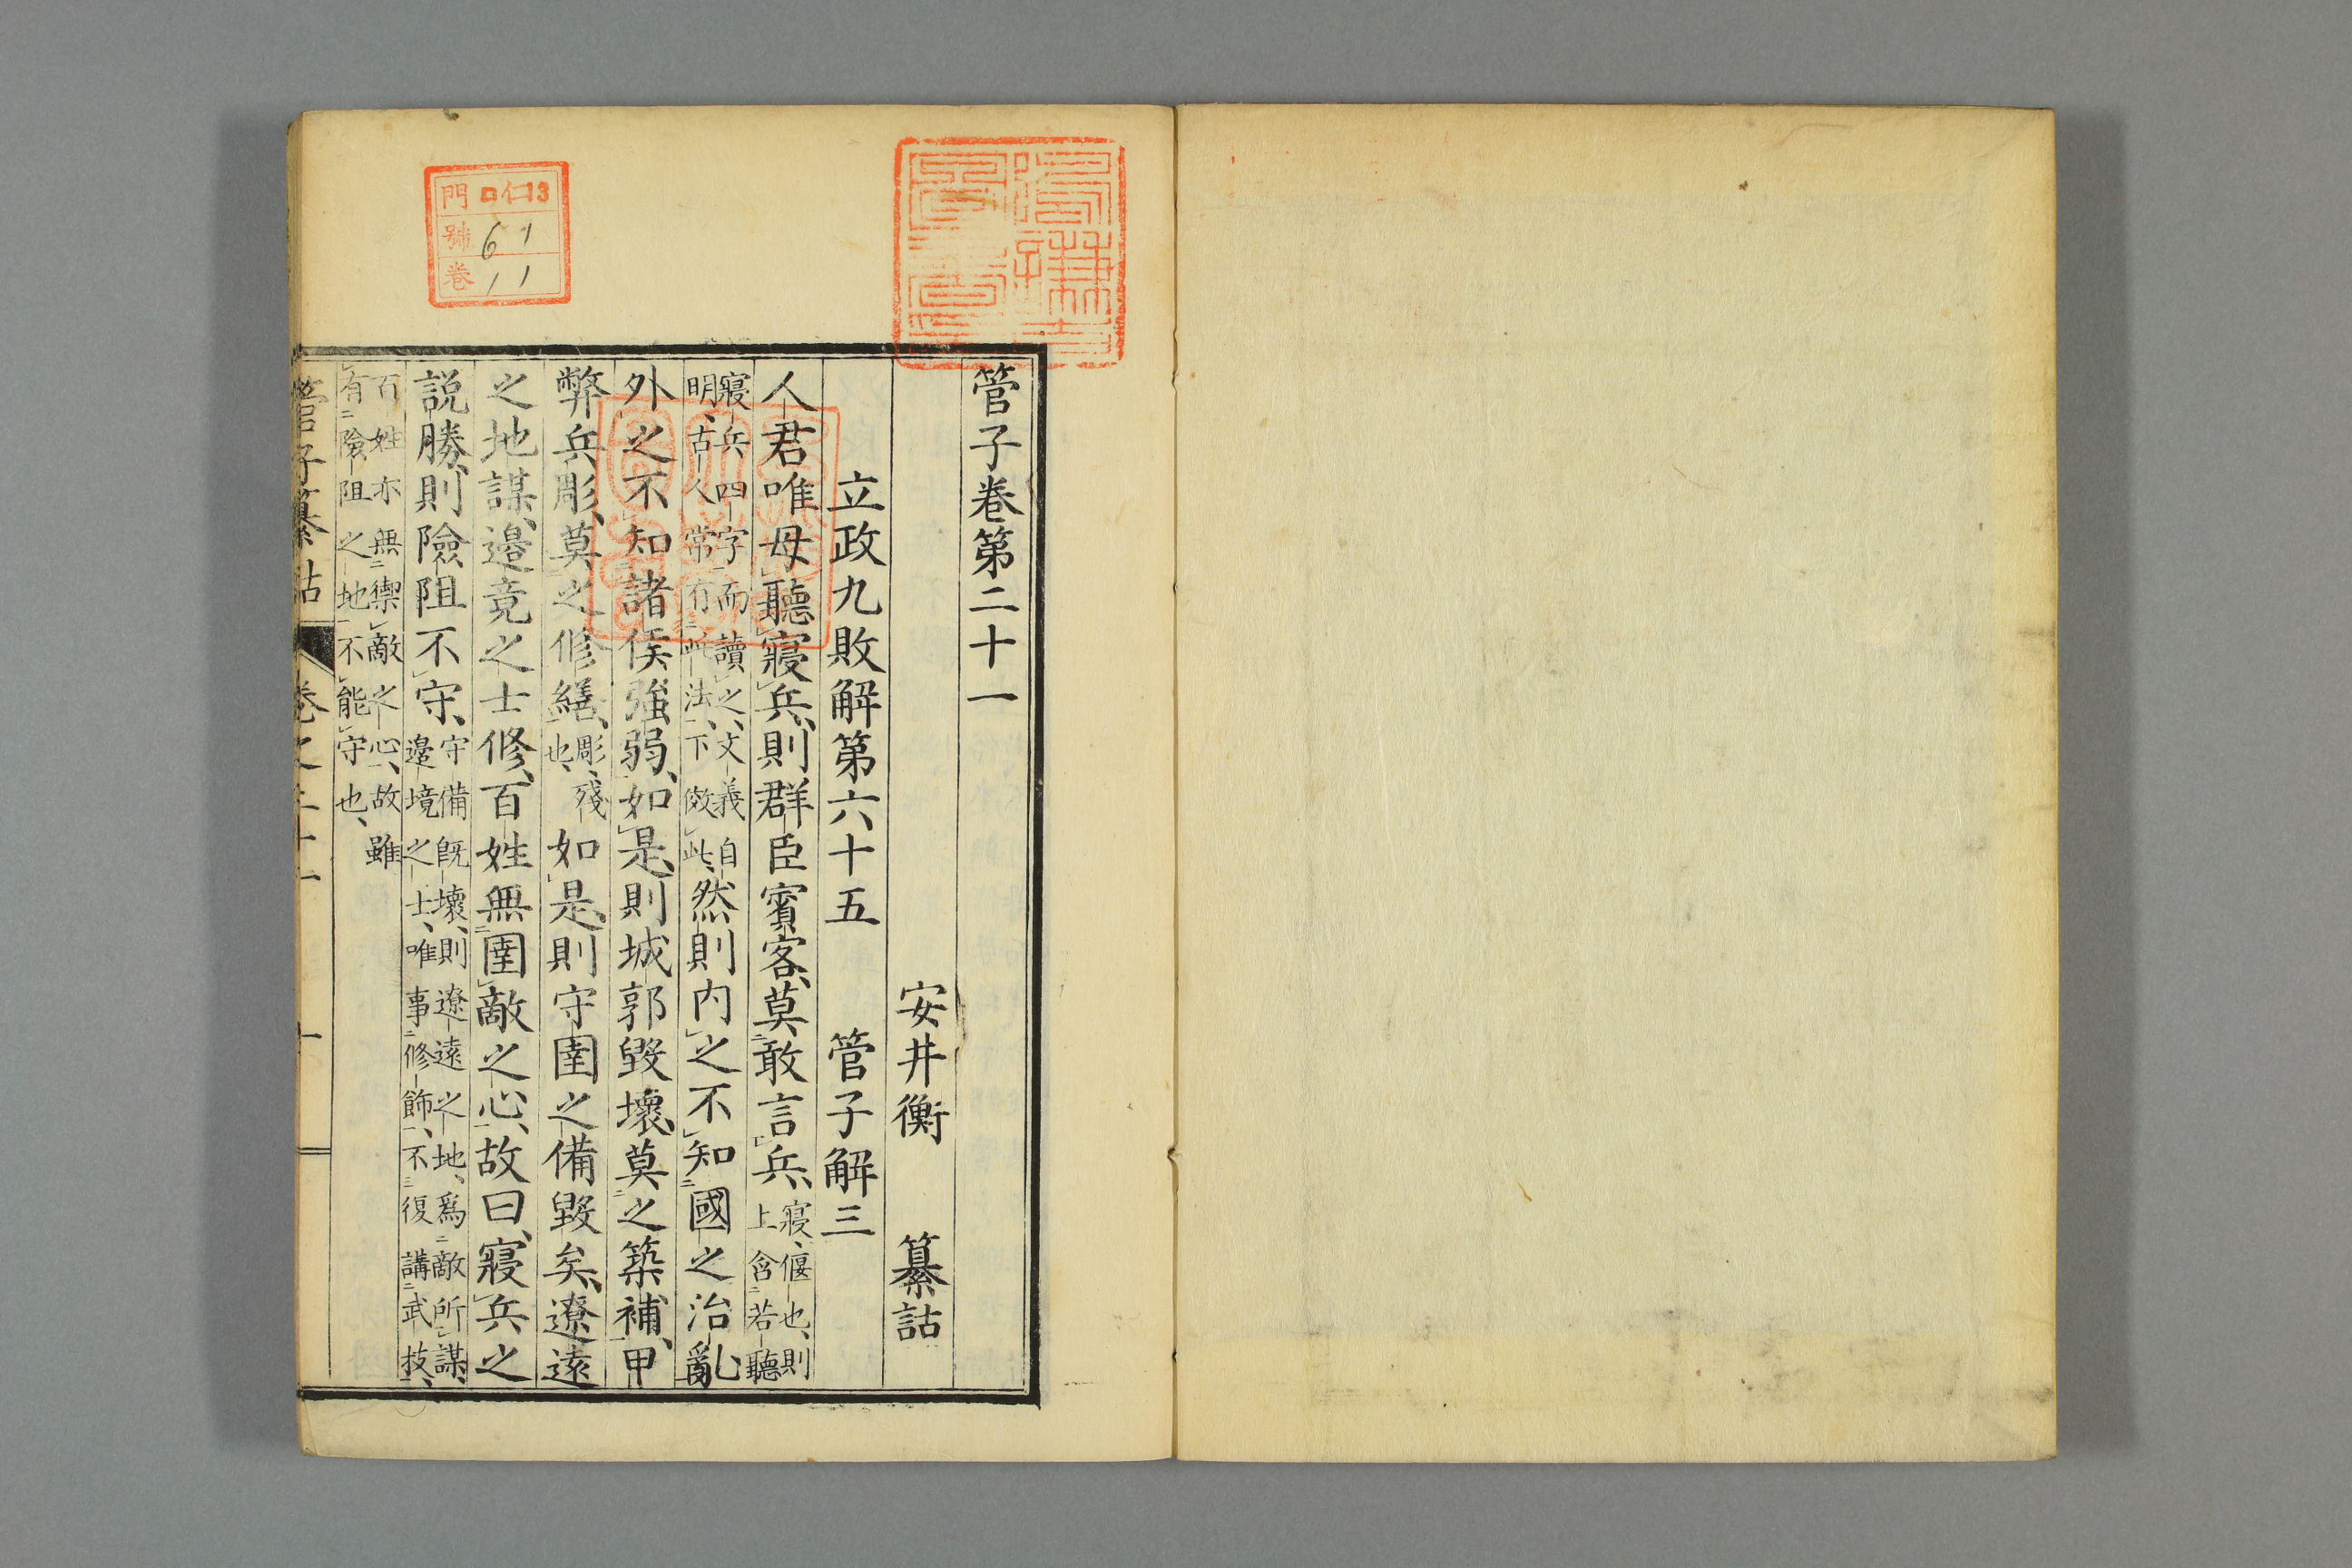 管子卷第二十一
安井衡 纂詁
立政九敗解第六十五 管子解三
人君唯毋聽寢兵、則群臣賓客、莫敢言兵、寢、偃也、則上含若聽
寢兵四字而讀之、文義自明、古人常有此法、下倣此、然則内之不知國之治亂
外之不知諸侯強弱、如是、則城郭毀壞、莫之築補、甲
弊兵彫、莫之修繕、彫、殘也、如是、則守圉之備毀矣、遼遠
之地謀、邉竟之士修、百姓無圉敵之心、故曰、寢兵之
說勝、則險阻不守、守備既壞、則遼遠之地、爲敵所謀、邉境之士、唯事修飾、不復講武技、
百姓亦無禦敵之心、故雖有險阻之地不能守也、
管子纂詁 卷之二十一 一
門 ロ仁13
號 61
卷 11